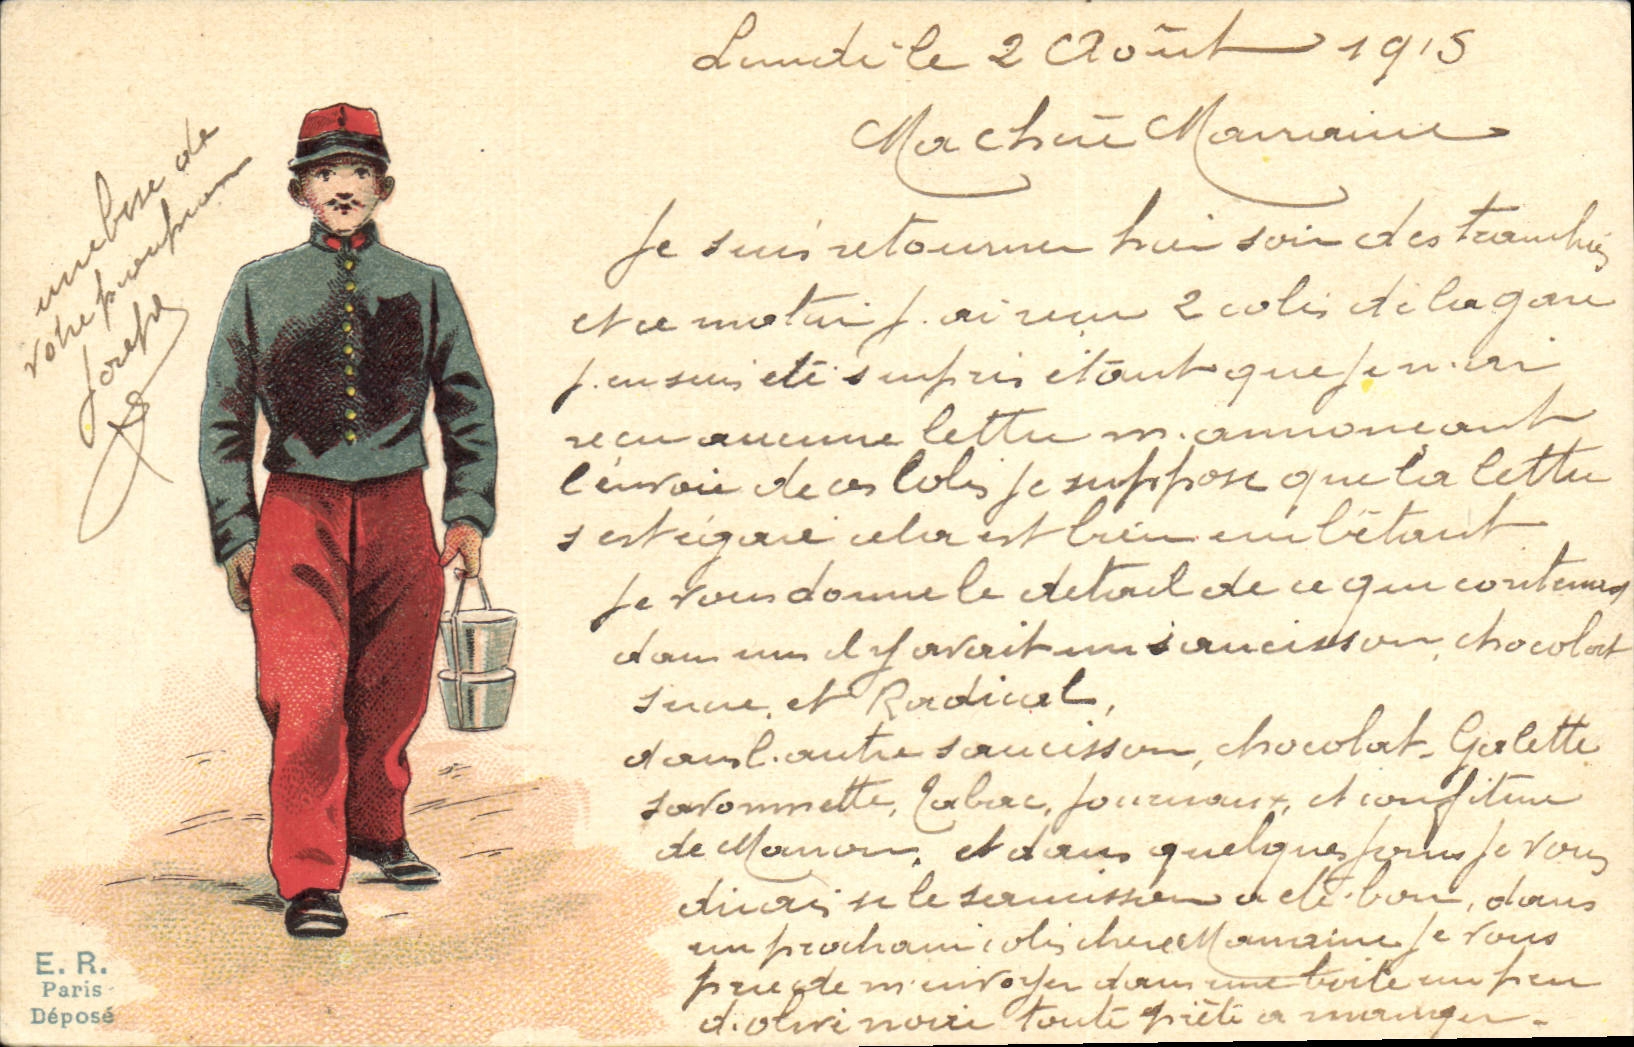 Lundi le 2 Août 1915
Ma Chère Marraine
Je suis retourner hier soir des tranchés
et ce matin j'ai reçu 2 colis de la gare
j'en suis été surpris étant que je n'ai
recu aucune lettre m'annoncant
l'envoie de ces Colis je suppose que la lettre
s'est égaré cela est bien embêtant
je vous donne le detail de ce que contenais
dans un il y avait un saucisson, chocolat
sucre, et Radical,
dans l'autre saucisson, chocolat, Galette
savonnette, Tabac, journaux, et confiture
de Marron, et dans quelques jours je vous
dirais si le saucisson a été bon, dans
un prochain colis chere Marraine je vous
prie de m'envoyer dans une boite un peu
d'olive noire toute prête a manger.
une bise de
votre
Joseph
E. R.
Paris
Déposé